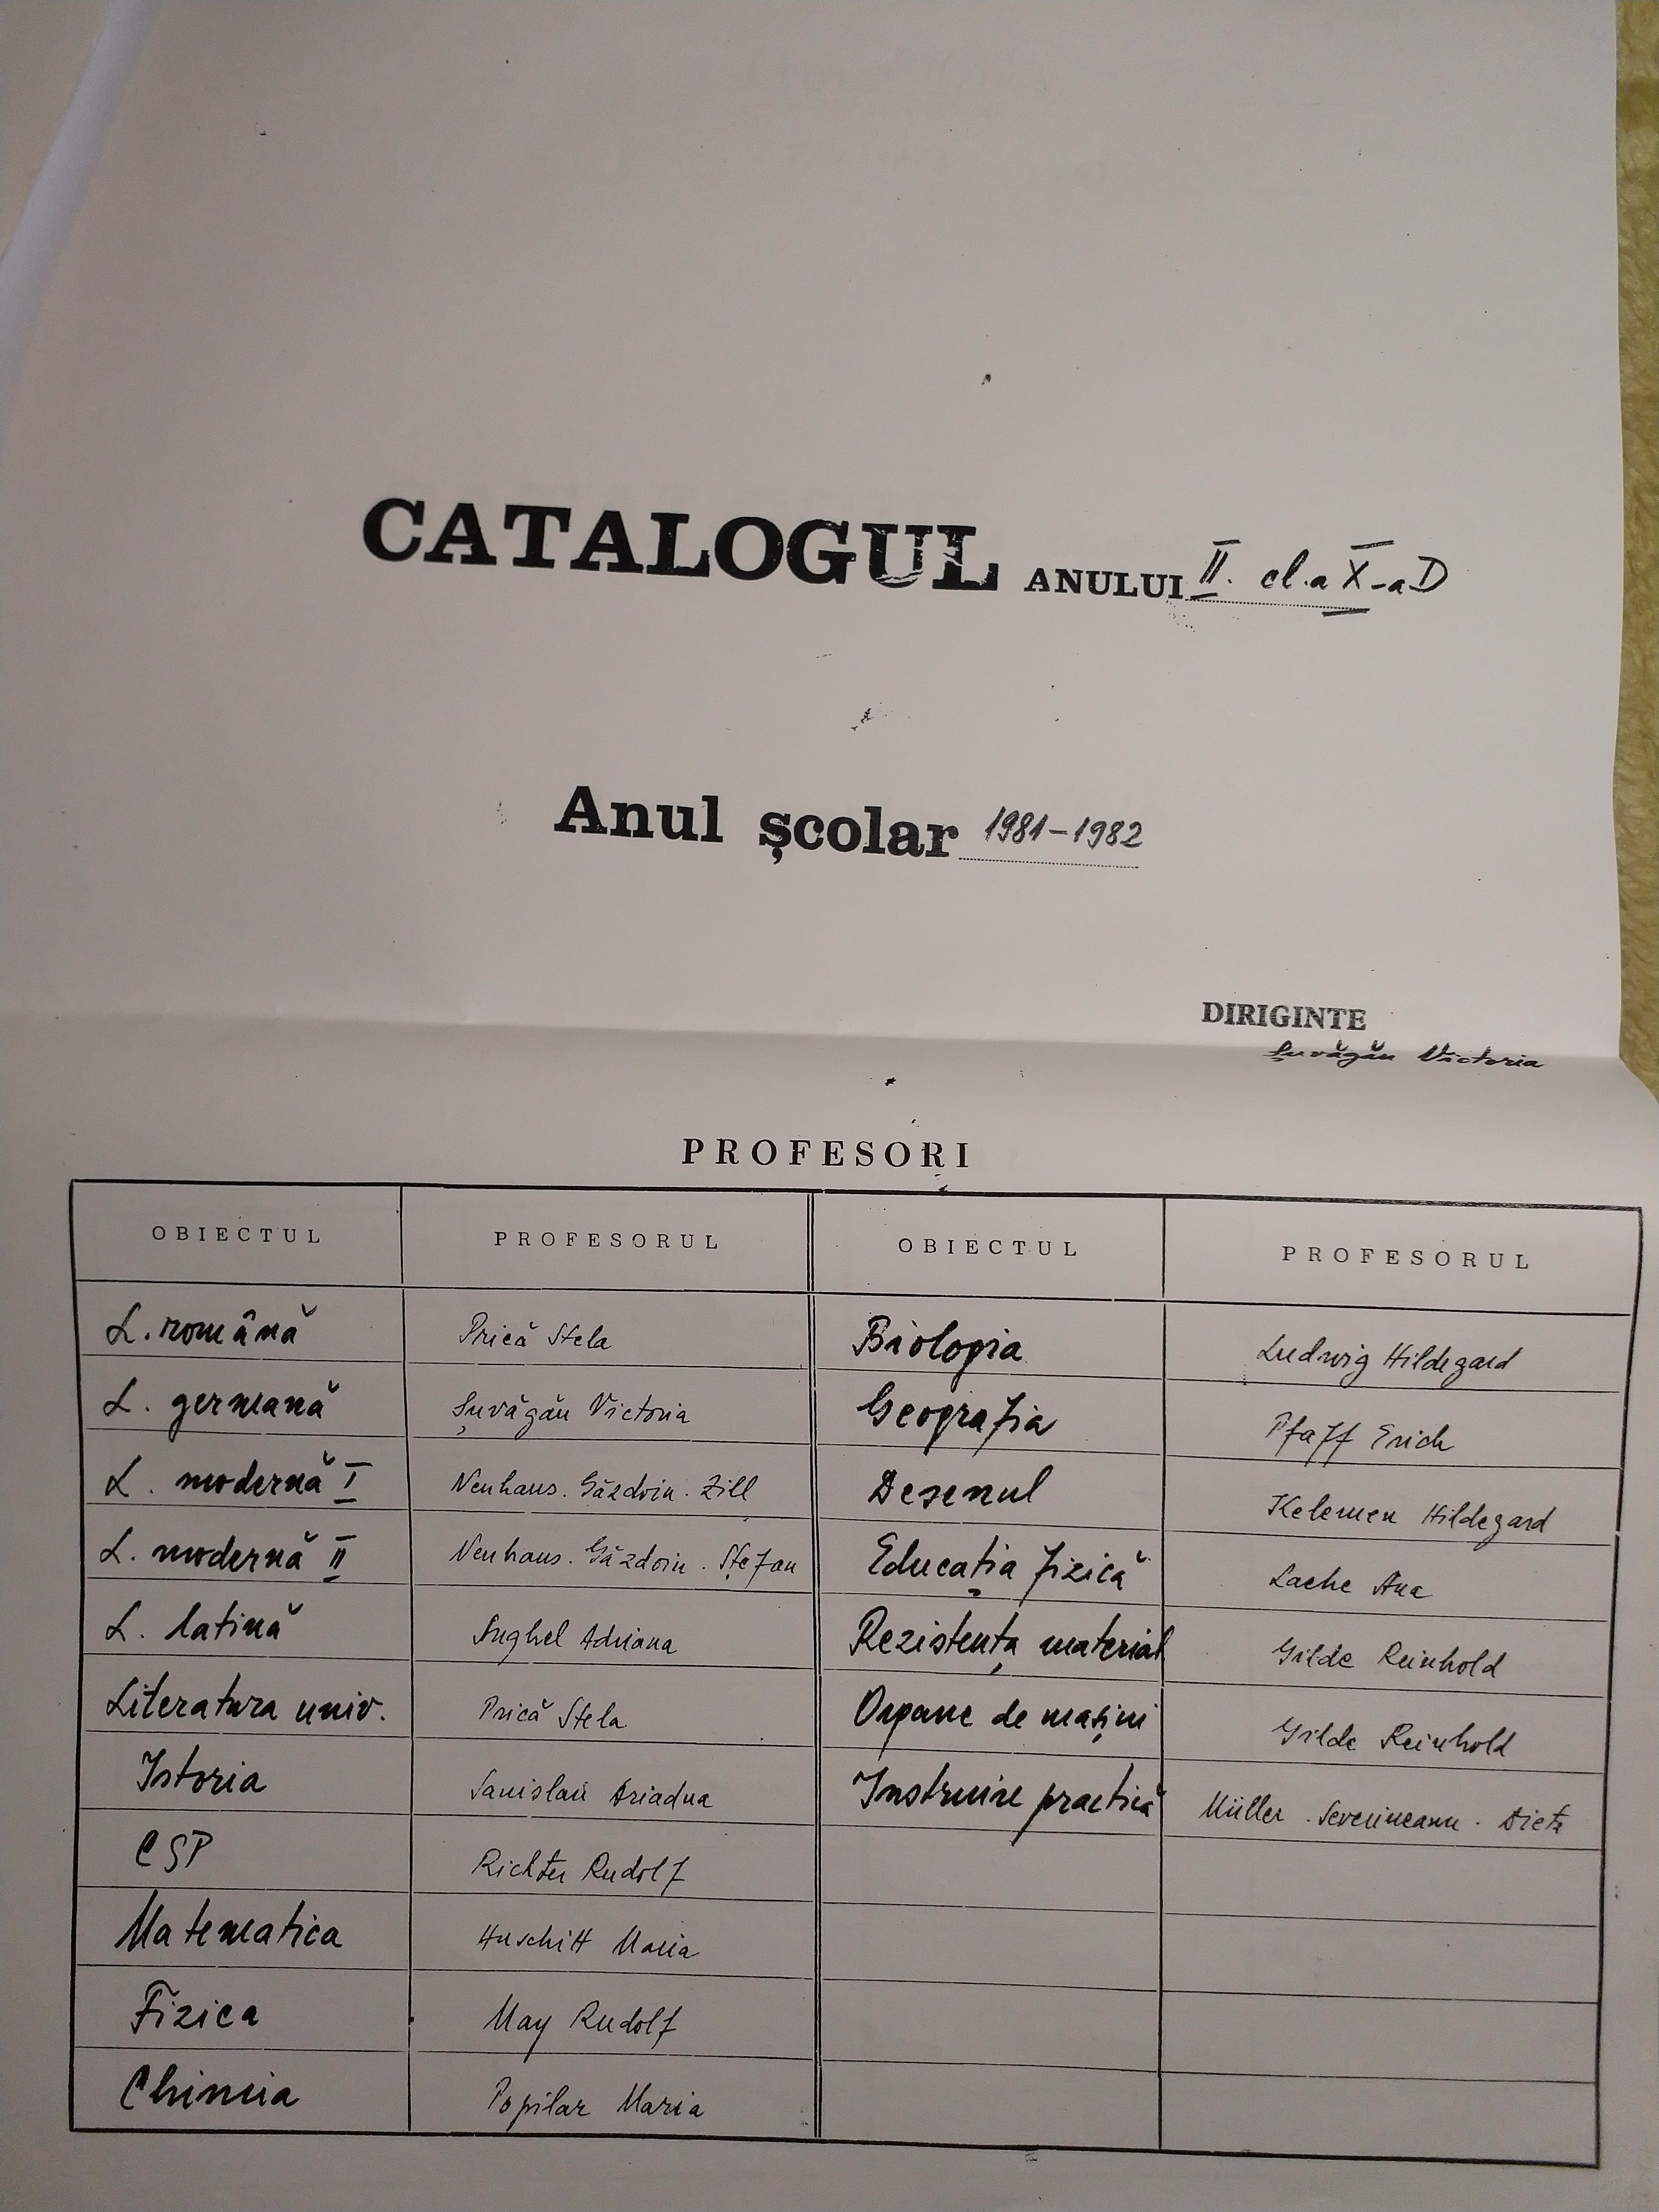 CATALOGUL ANULUI II. cl.a X-a D
Anul școlar 1981-1982
DIRIGINTE
Șuvăgău Victoria
PROFESORI
OBIECTUL PROFESORUL OBIECTUL PROFESORUL
L. română Prică Stela Biologia Ludwig Hildegard
L. germană Șuvăgău Victoria Geografia Pfaff Erich
L. modernă I Neuhaus. Găzdoiu. Zill Desenul Kelemen Hildegard
L. modernă II Neuhaus. Găzdoiu. Ștefan Educația fizică Lache Ana
L. latină Adriana Rezistența material Gilde Reinhold
Literatura univ. Prică Stela Organe de mașini Gilde Reinhold
Istoria Ariadna Instruire practică Müller. Severineanu. Dietz
CSP Richter Rudolf
Matematica Huschitt Maria
Fizica May Rudolf
Chimia Popilar Maria